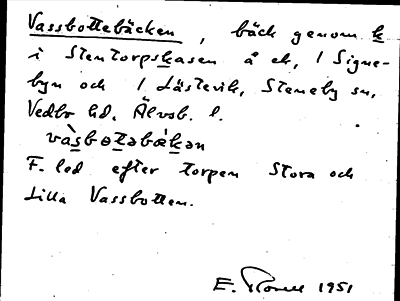 Vassbottebäcken, bäck genom k
i Stentorpskasen å ek, 1 Signe-
byn och 1 Låstevik, Steneby sn,
Vedbo hd. Älvsb. l.
vàsbɵtəbækən
F. led efter torpen Stora och
Lilla Vassbotten.
E. 1951